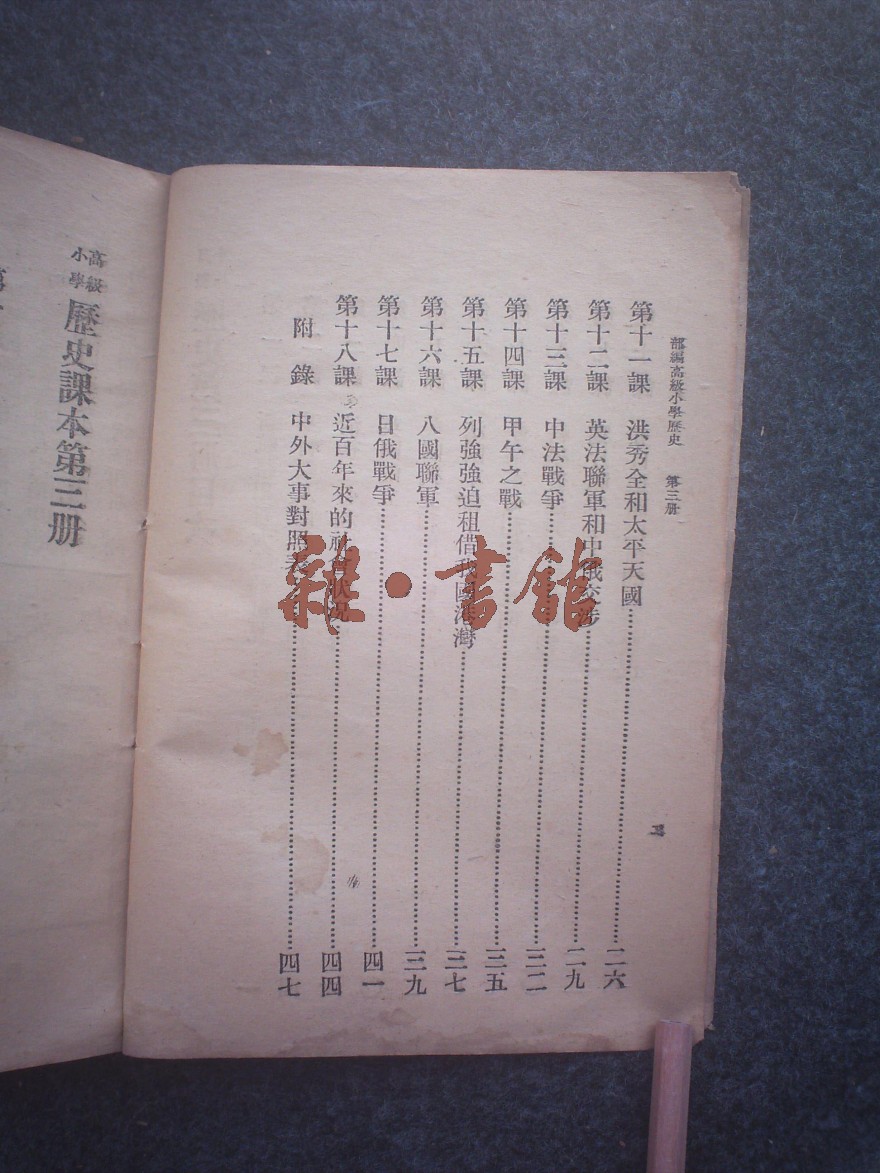 部編高級小學歷史　第三册
第十一課　洪秀全和太平天國……二六
第十二課　英法聯軍和中俄交涉……二九
第十三課　中法戰爭……三二
第十四課　甲午之戰……三五
第十五課　列強強迫租借我國港灣……三七
第十六課　八國聯軍……三九
第十七課　日俄戰爭……四一
第十八課　近百年來的社會狀況……四四
附錄　中外大事對照表……四七
高級小學　歷史課本第三册
雜·書館